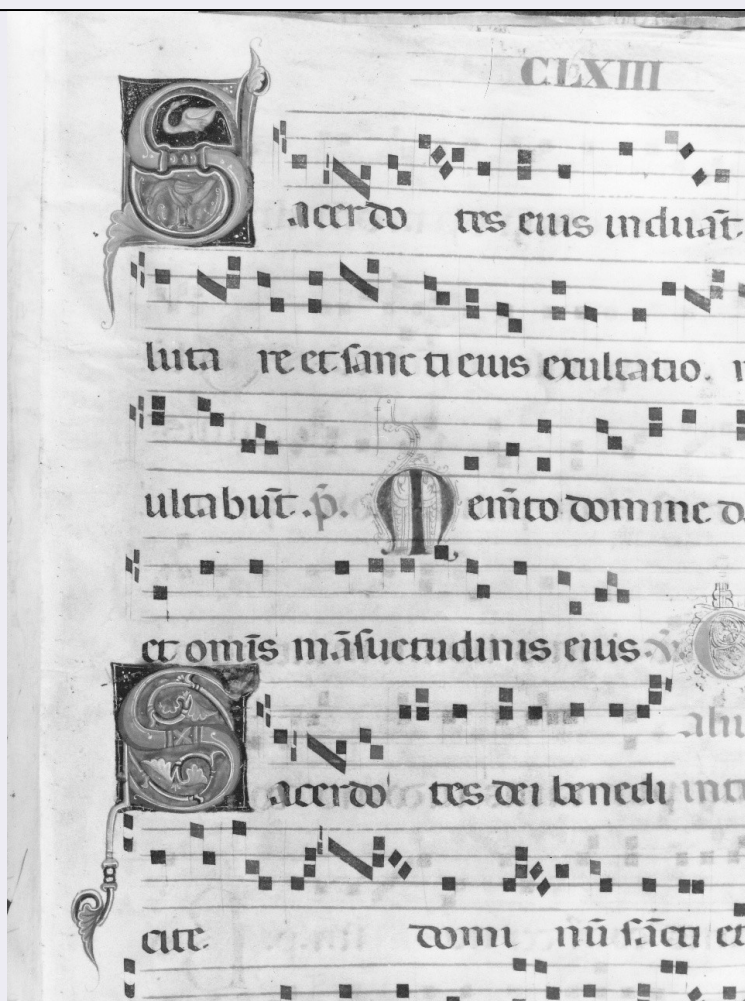 CLXIII
Sacerdo tes eius induāt
luta re et sanc ti eius exultatio.
ultabūt .p̄. Mem̄to domine d
et om̄is māsuetudinis eius.
Sacerdo tes dei benedi
cite domi nū sācti et